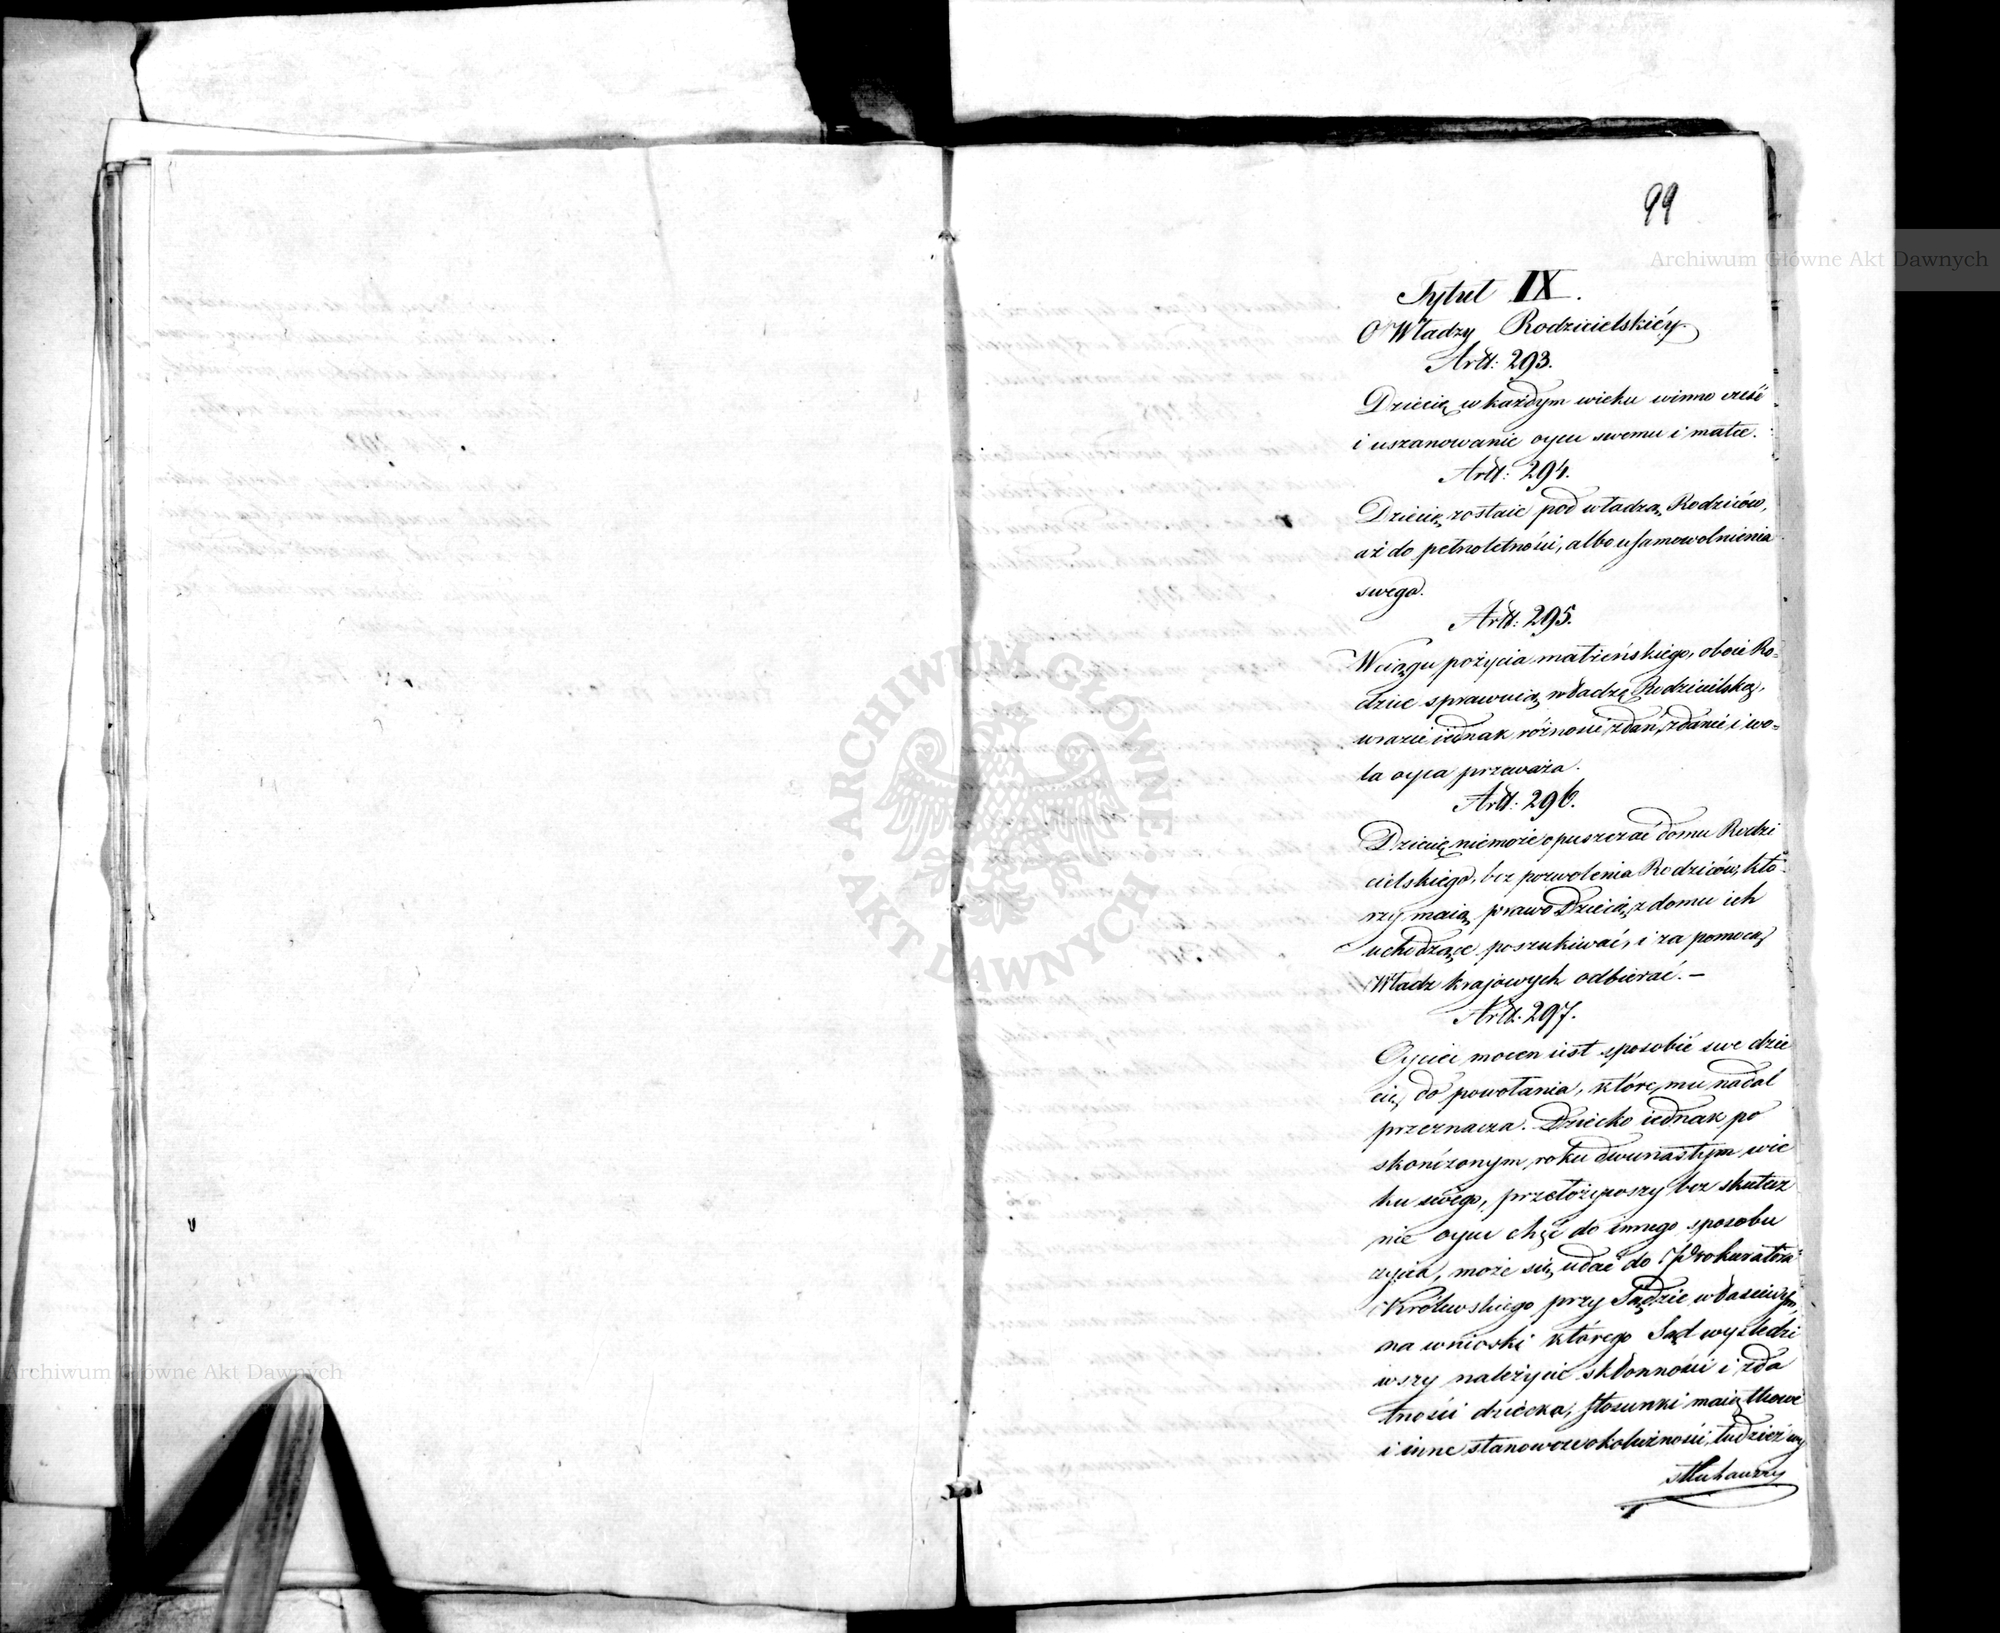 99
Archiwum Główne Akt Dawnych
Tytuł IX.
O Władzy Rodzicielskiéy.
Artt: 293.
Dziecię w każdym wieku winno cześć
i uszanowanie oycu swemu i matce.
Artt: 294.
Dziecię zostaie pod władzą Rodziców,
aż do pełnoletności, albo usamowolnienia
swego.
Artt: 295.
W ciągu pożycia małżeńskiego, oboie Ro=
dzice sprawuią władzę Rodzicielską,
w razie iednak różności zdań, zdanie i wo=
la oyca przeważa.
Artt: 296.
Dziecię niemoże opuszczać domu Rodzi
cielskiego, bez pozwolenia Rodziców, któ=
rzy maią prawo Dziecię z domu ich
uchodzące poszukiwać, i za pomocą
Władz krajowych odbierać. –
Artt: 297.
Oyciec mocen iest sposobić swe dzie
cię do powołania, które mu nadal
przeznacza. Dziecko iednak po
skończonym roku dwunastym wie
ku swego, przełożywszy bez skutecz
nie oycu chęć do innego sposobu
życia, może się udać do Prokuratora
Królewskiego przy Sądzie właściwym,
na wnioski którego Sąd wyśledzi
wszy należycie skłonności i zda
tności dziecka, stosunki maiątkowe
i inne stanowcze okoliczności, tudzież wy
słuchawszy
ARCHIWUM GŁÓWNE
AKT DAWNYCH
Archiwum Główne Akt Dawnych